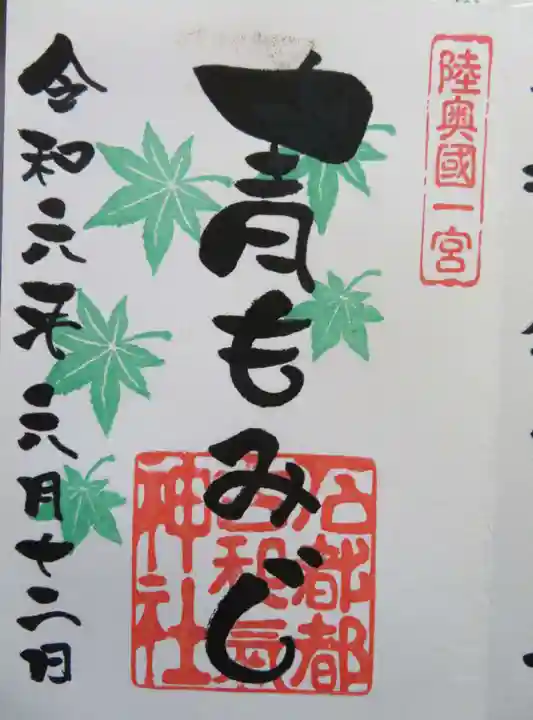 陸奥國一宮
青もみじ
石都都古和氣神社
令和六年六月十二日